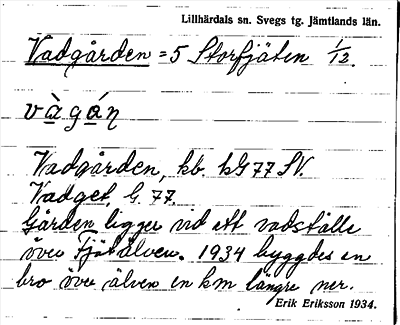 Lillhärdals sn. Svegs tg. Jämtlands län.
Vadgården = 5 Storfjäten 1/12.
vàgáṇ
Vadgården, kb. hG 77 SV.
Vadget, G. 77.
Gården ligger vid ett vadställe
över Fjätälven. 1934 byggdes en
bro över älven en km längre ner.
Erik Eriksson 1934.